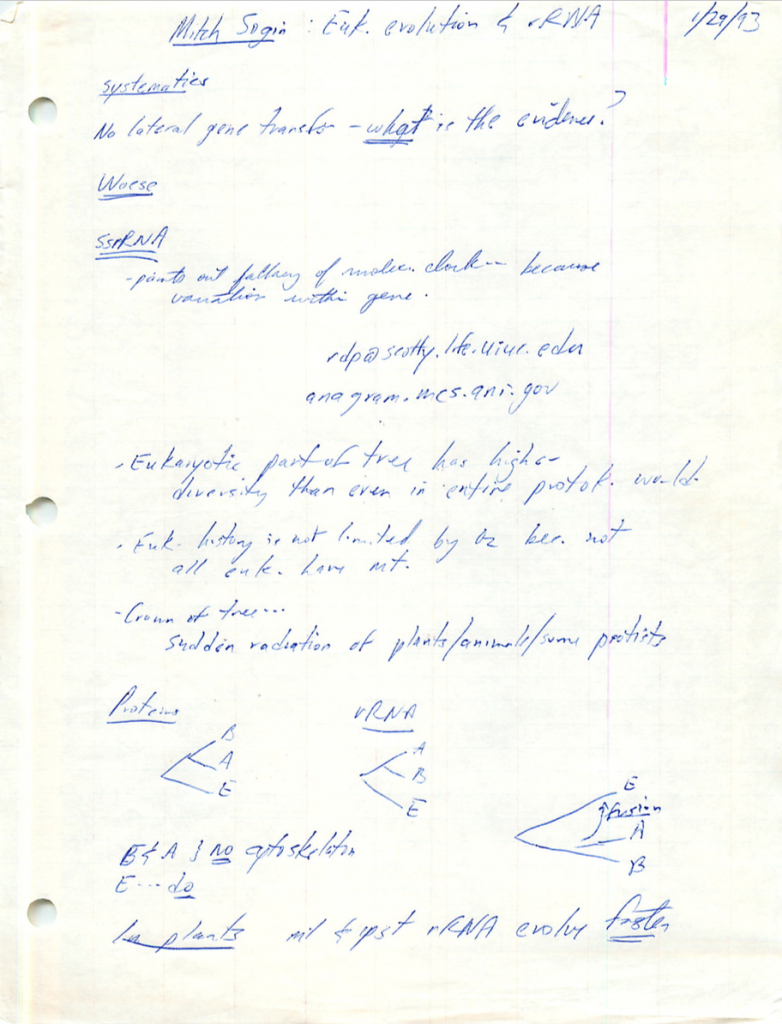 Mitch Sogin : Euk. evolution & rRNA 1/29/93
systematics
No lateral gene transfer - what is the evidence?
Woese
SSrRNA
- points out fallacy of molec. clock -- because
variation within gene.
rdp@scotty.life.uiuc.edu
anagram.mcs.anl.gov
. Eukaryotic part of tree has higher
diversity than even in entire prokok. world.
. Euk. history is not limited by O2 bec. not
all euk. have mt.
- Crown of tree...
Sudden radiation of plants/animals/some protists
Proteins rRNA
B A
A B
E E
E
fusion
A
B
B & A } no cytoskeleton
E ... do
In plants mt & cpst rRNA evolve faster